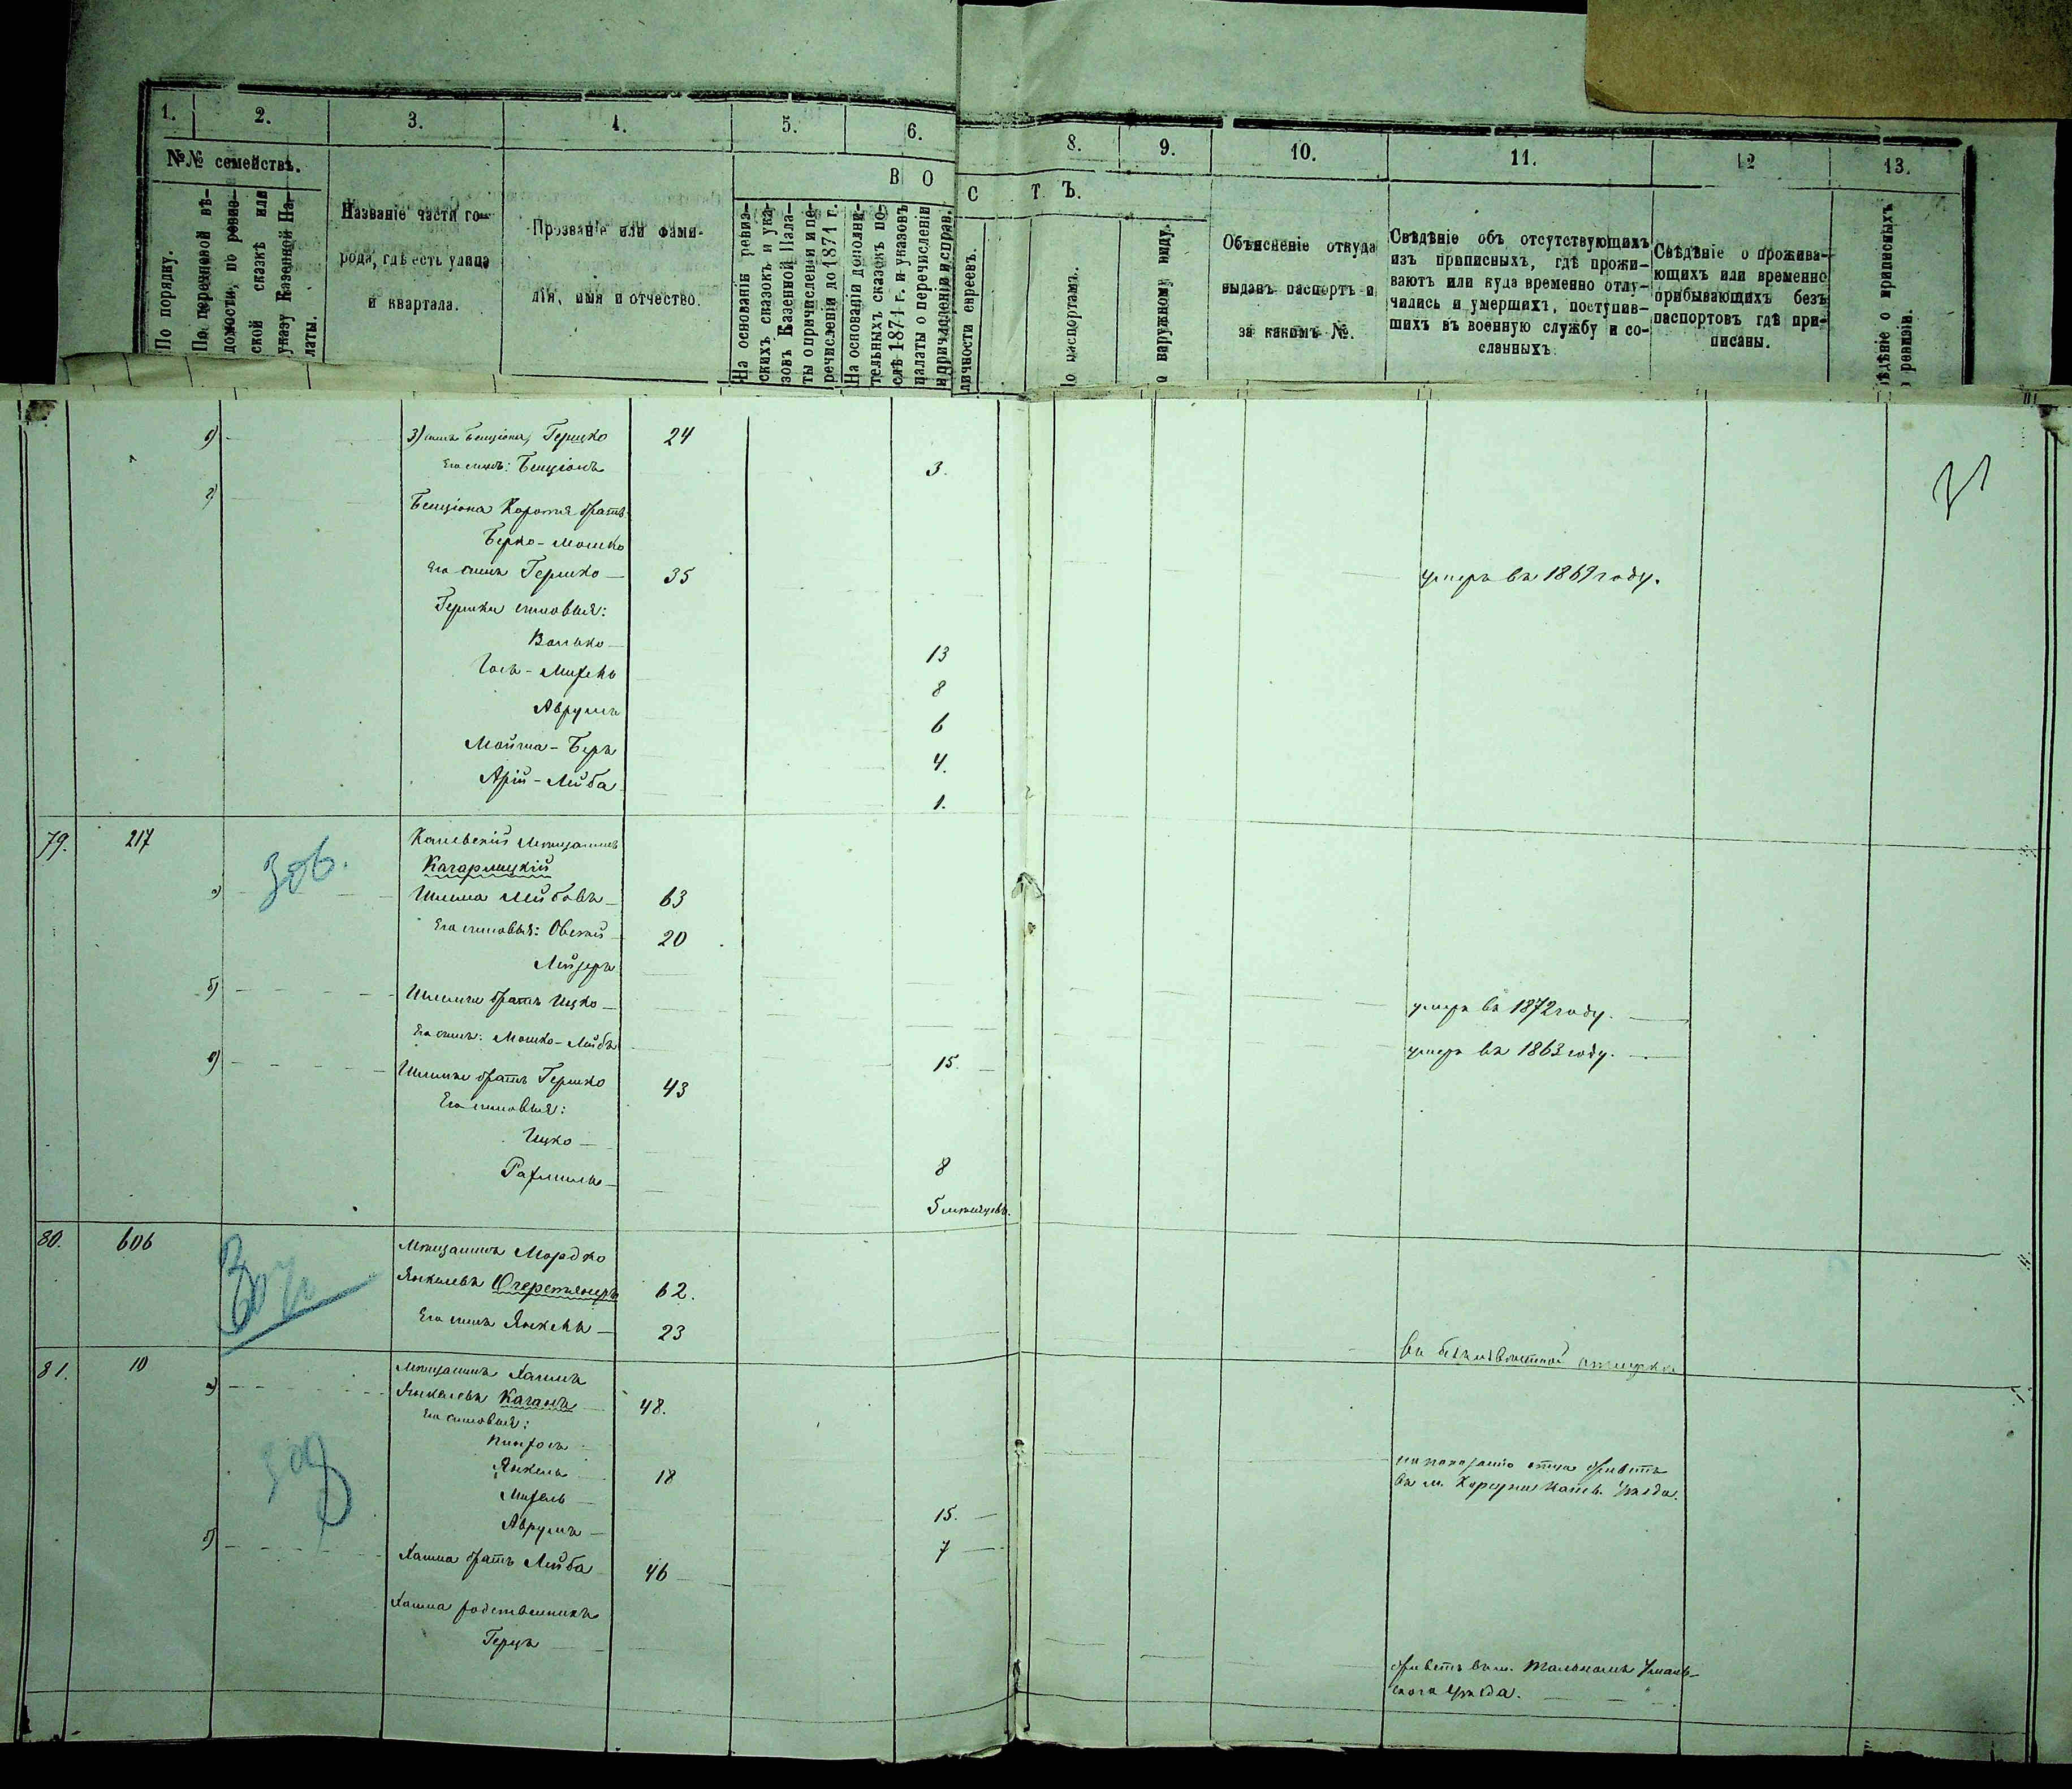 1. 2. 3. 4. 5. 6. 8. 9. 10. 11. 12 13.
№№ семействъ.
В О С Т Ъ.
По порядку.
По перемновой вѣ-
домости, по ревиз-
ской сказкѣ или
указу Казенной Па-
латы.
Названіе части го-
рода, гдѣ есть улица
и квартала.
Прозваніе или фами-
лія, имя и отчество.
На основаніи ревиз-
скихъ сказокъ и ука-
зовъ Казенной Пала-
ты о причисленіи и пе-
речисленіи до 1871 г.
На основаніи дополни-
тельныхъ сказокъ по-
слѣ 1871 г. и указовъ
палаты о перечисленіи
и причисленіи и справ.
личности евреевъ.
о паспортамъ.
о наружному виду.
Объясненіе откуда
выданъ паспортъ и
за какимъ №.
Свѣдѣніе объ отсутствующихъ
изъ приписныхъ, гдѣ прожи-
ваютъ или куда временно отлу-
чились и умершихъ, поступив-
шихъ въ военную службу и со-
сланныхъ.
Свѣдѣніе о прожива-
ющихъ или временно
прибывающихъ безъ
паспортовъ гдѣ при-
писаны.
ѣдѣніе о приписныхъ
ревизіи.
в) 3) сынъ Бенціона, Гершко 24
Его сынъ: Бенціонъ 3.
г) Бенціона братъ
Берко-Мошко
Его сынъ Гершко 35 умеръ въ 1869 году.
Гершки сыновья:
Волько 13
8
Аврумъ 6
Мойша-Беръ 4.
Арій-Лейба 1.
79. 217 306. Каневскій мѣщанинъ
Кагарлицкій
а) Шлёма Лейбовъ 63
Его сыновья: Овсей 20
Лейзеръ
б) Шлёмы братъ Ицко умеръ въ 1872 году.
Его сынъ: Мошко-Лейбъ 15. умеръ въ 1863 году.
в) Шлёмы братъ Гершко 43
Его сыновья:
Ицко 8
Рахмиль 5 мѣсяцевъ.
80. 606 307 Мѣщанинъ Мордко
Янкелевъ Очеретянеръ 62.
Его сынъ Янкель 23 въ безъизвѣстной отлучкѣ
81. 10 308 Мѣщанинъ Хаимъ
а) Янкелевъ Каганъ 48.
Его сыновья:
Пинхосъ
Янкель 18 по показанію отца живетъ
въ м. Корсунѣ Канев. уѣзда.
Михель 15.
Аврумъ 7
б) Хаима братъ Лейба 46
Хаима родственникъ
Герцъ живетъ въ м. Тальномъ Уман-
скаго уѣзда.